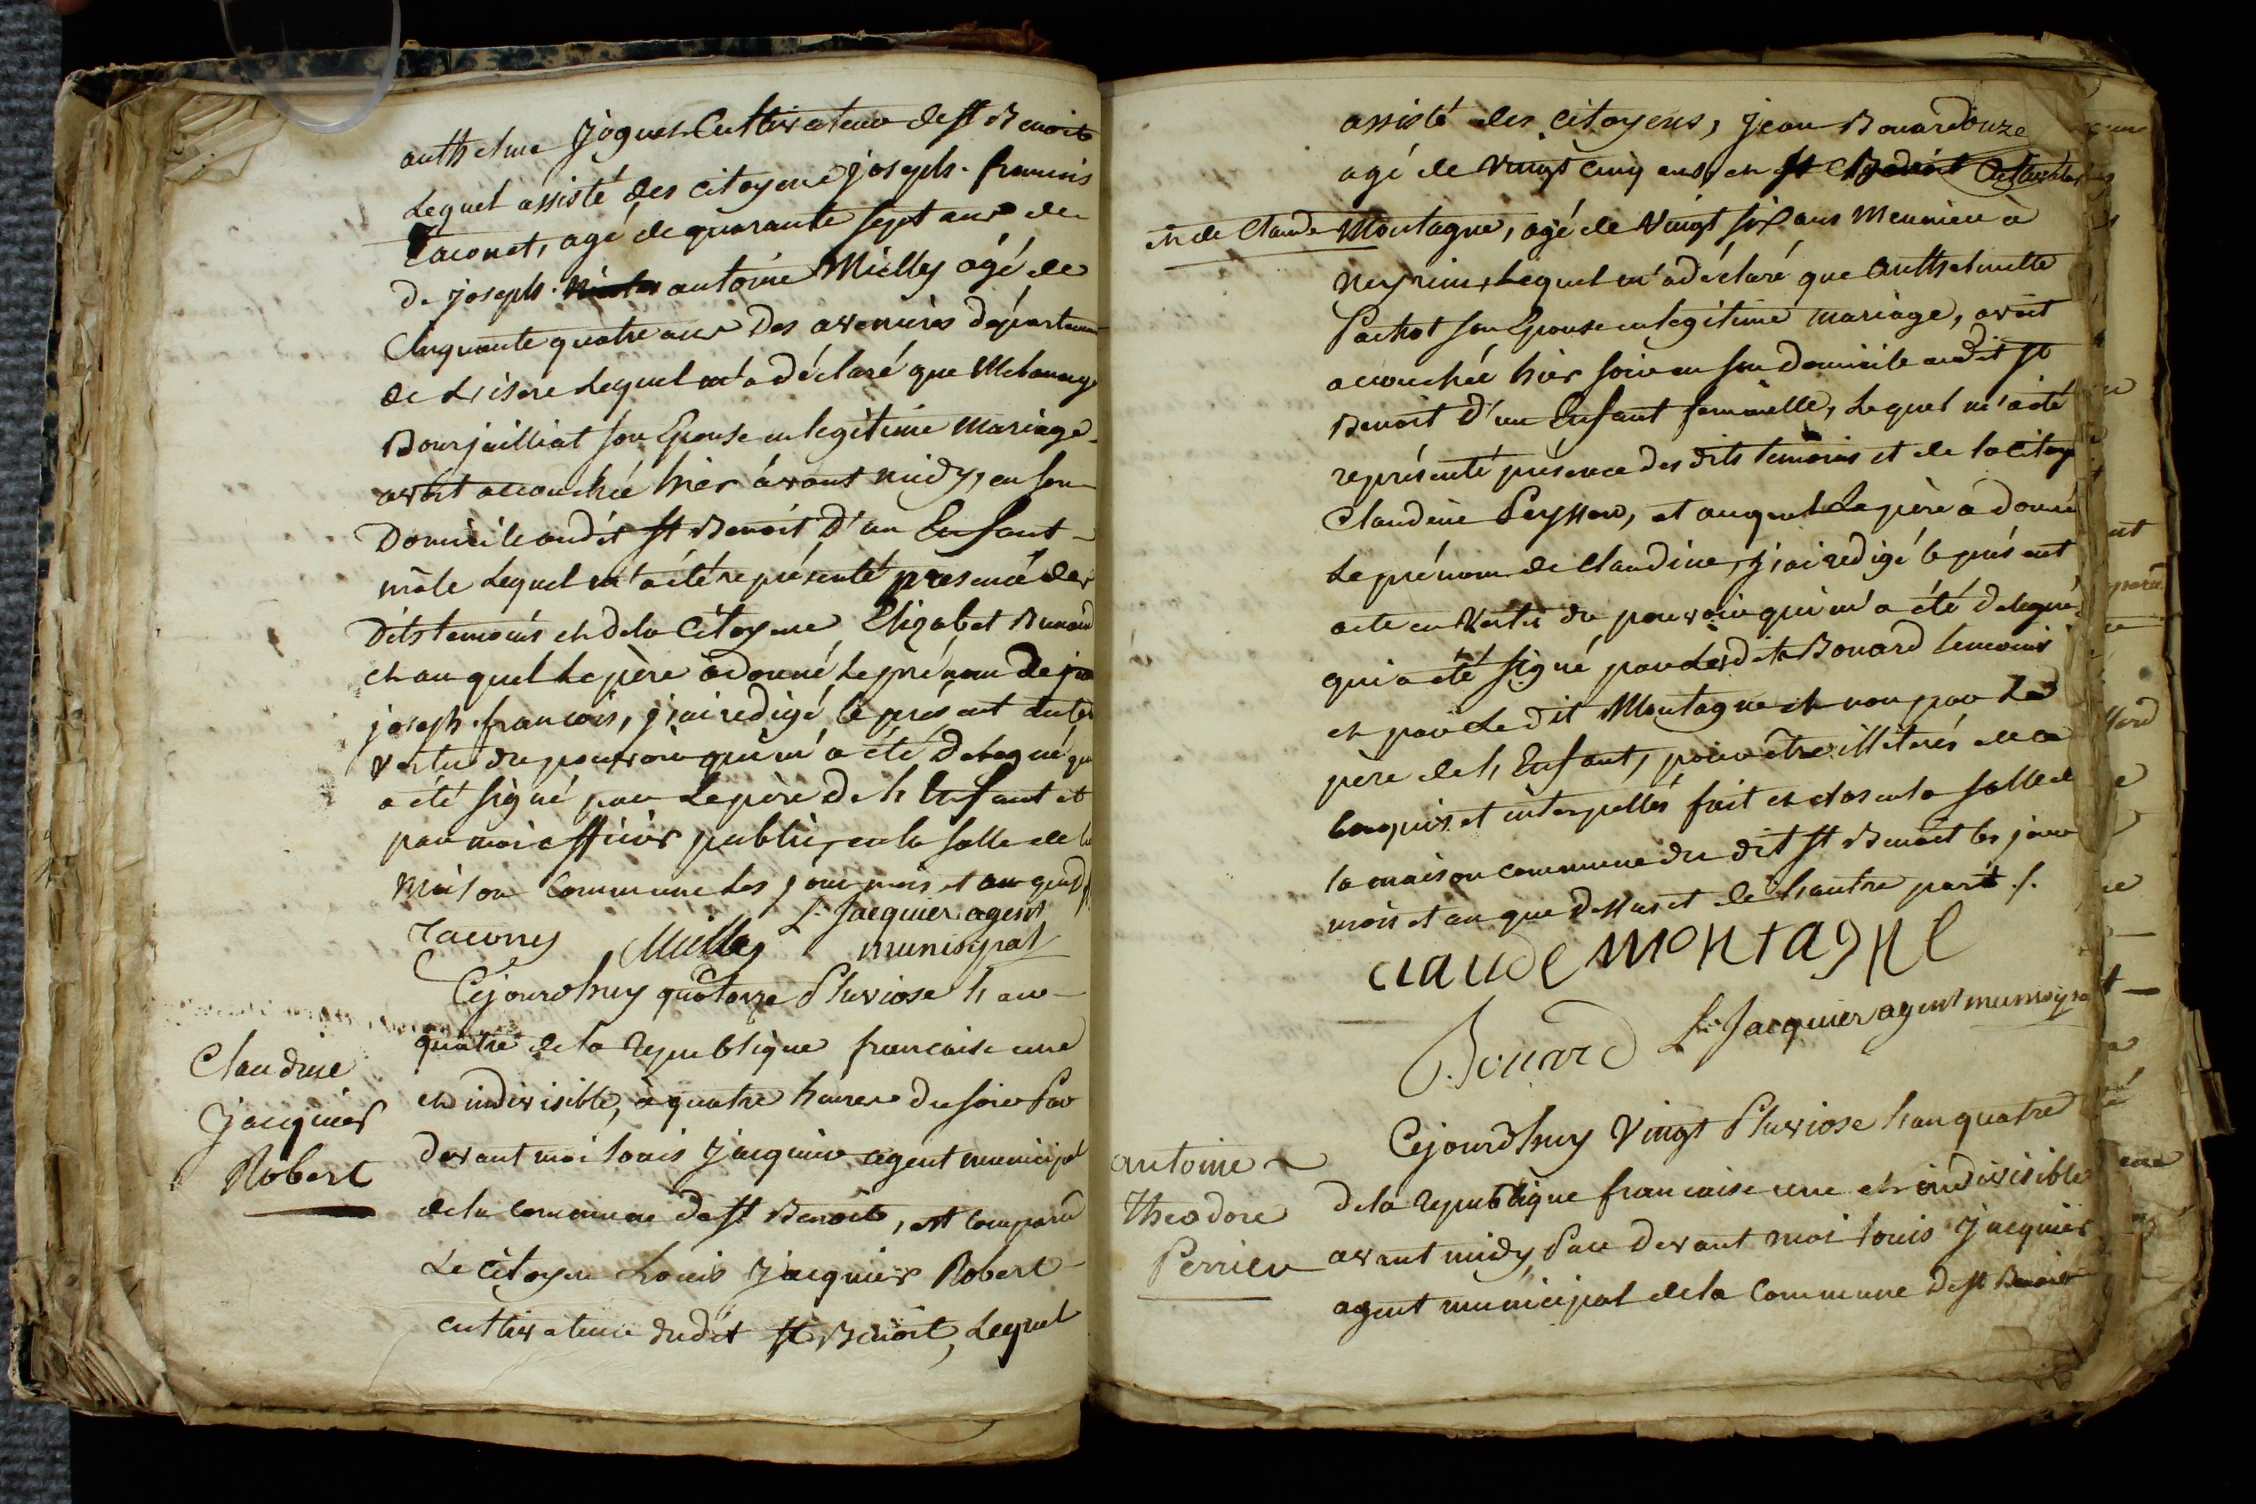 anthelme Joguet Cultivateur de st Benoit
Lequel assisté des citoyens joseph. francois
Taconet, agé de quarante sept ans de
De joseph. antoine Mielley agé de
Cinquante quatre ans Des avenieres département
de L'isere Lequel m'a déclaré que
Bourjailliat son Epouse en legitime Mariage
avoit accouchée hier avant midy, en son
Domicile audit st Benoit D'un Enfant
mâle Lequel m'a été représenté presence des
Dits temoins et de la Citoyene Elizabet Bunand
et au quel le père a donné le prénom De
joseph. francois, j'ai redigé le present
vertu du pouvoir qui m'a été Delegué qui
a été signé par Le père De L'Enfant et
par moi officier public, en la salle de la
Maison Commune les jour mois et an que
L. Jacquier agent
Taconet Mielley municipal
Cejourdhuy quatorze Pluviose L'an
quatre de la republique francaise une
et indivisible, à quatre heures du soir Par
devant moi louis Jacquier agent municipal
de la Commune de st Benoit, est comparu
Le Citoyen Louis Jacquier Robert
cultivateur dudit st Benoit, Lequel
Claudine
Jacquier
Robert
assisté des citoyens, Jean Bouard
agé de vingt cinq ans, de st Benoit
et de Claude Montagne, agé de vingt six ans Meunier à
neyrieu, Lequel m'a déclaré que Anthelmette
Pachot son Epouse en legitime mariage, avoit
accouchée hier soir en son Domicile audit st
Benoit d'un Enfant femmelle, Lequel m'a été
représenté présence des dits temoins et de la Citoy
Claudine Peysson, et auquel Le père a donné
Le prénom de Claudine, j'ai redigé le présent
acte en Vertu du pouvoir qui m'a été Delegué
qui a été signé par Ledit Bouard temoins
et par Le Dit Montagne et non par Le
père de L'Enfant, pour être illiterés de ce
enquis et interpellés fait et clos en la salle de
la maison commune du dit st Benoit les jour
mois et an que Dessus et de L'autre part ./.
claude montagne
Bouard L. Jacquier agent municipal
Cejourdhuy Vingt Pluviose L'an quatre
de la republique francaise une et indivisible
avant midy, Par Devant moi louis Jacquier
agent municipal de la Commune De st Benoit
antoine
theodore
Perrier